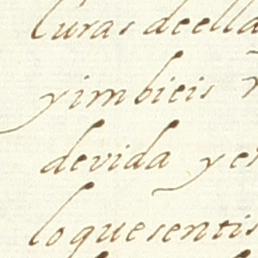 luras deella
yimbieis
devida yen
loquesentis